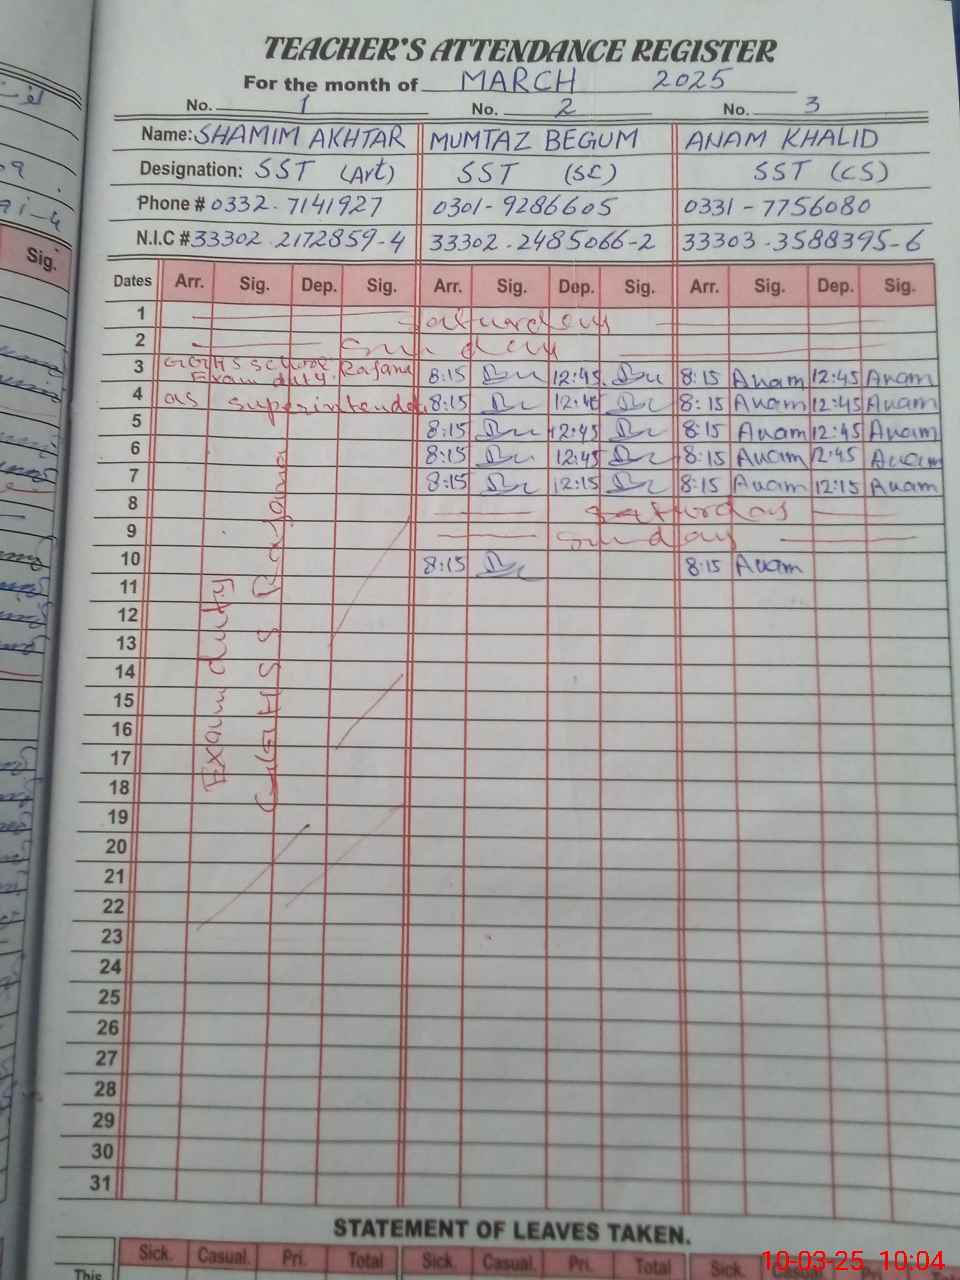 TEACHER'S ATTENDANCE REGISTER
For the month of MARCH 2025
No. 1 No. 2 No. 3
Name: SHAMIM AKHTAR MUMTAZ BEGUM ANAM KHALID
Designation: SST (Art) SST (SC) SST (CS)
Phone # 0332-7141927 0301-9286605 0331-7756080
N.I.C # 33302-2172859-4 33302-2485066-2 33303-3588395-6
Dates Arr. Sig. Dep. Sig. Arr. Sig. Dep. Sig. Arr. Sig. Dep. Sig.
1 Saturday
2 Sunday
3 Rajana 8:15 12:45 8:15 Anam 12:45 Anam
Exam duty
4 as superintendent 8:15 12:45 8:15 Anam 12:45 Anam
5 8:15 12:45 8:15 Anam 12:45 Anam
6 8:15 12:45 8:15 Anam 2:45 Anam
7 8:15 12:15 8:15 Anam 12:15 Anam
8 Saturday
9 Sunday
10 8:15 8:15 Anam
11
12
13
14
15
16
17
18
19
20
21
22
23
24
25
26
27
28
29
30
31
Exam duty
GGHSS Rajana
STATEMENT OF LEAVES TAKEN.
Sick. Casual. Pri. Total Sick. Casual. Pri. Total Sick. Casual.
This
Sig.
10-03-25 10:04